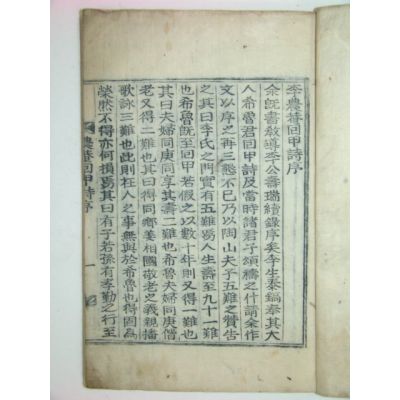 李農菴回甲詩序
余旣書敎導李公壽瑞續錄序矣李生泰鎬奉其大
人希魯君回甲詩及當時諸君子頌禱之什請余作
文以序之再三懇不已乃以陶山夫子五難之贊告
之其曰李氏之門實有五難焉人生壽至九十一難
也希魯旣至回甲若假之以數十年則又得一難也
其曰夫婦同庚同享其壽二難也希魯夫婦同庚偕
老又得二難也其曰得同鄕美相國敬老之義親播
歌詠三難也此則在人之事無與於希魯也得固為
榮然不得亦何損焉其曰有子若孫有孝勤之行至
農菴回甲詩序
一